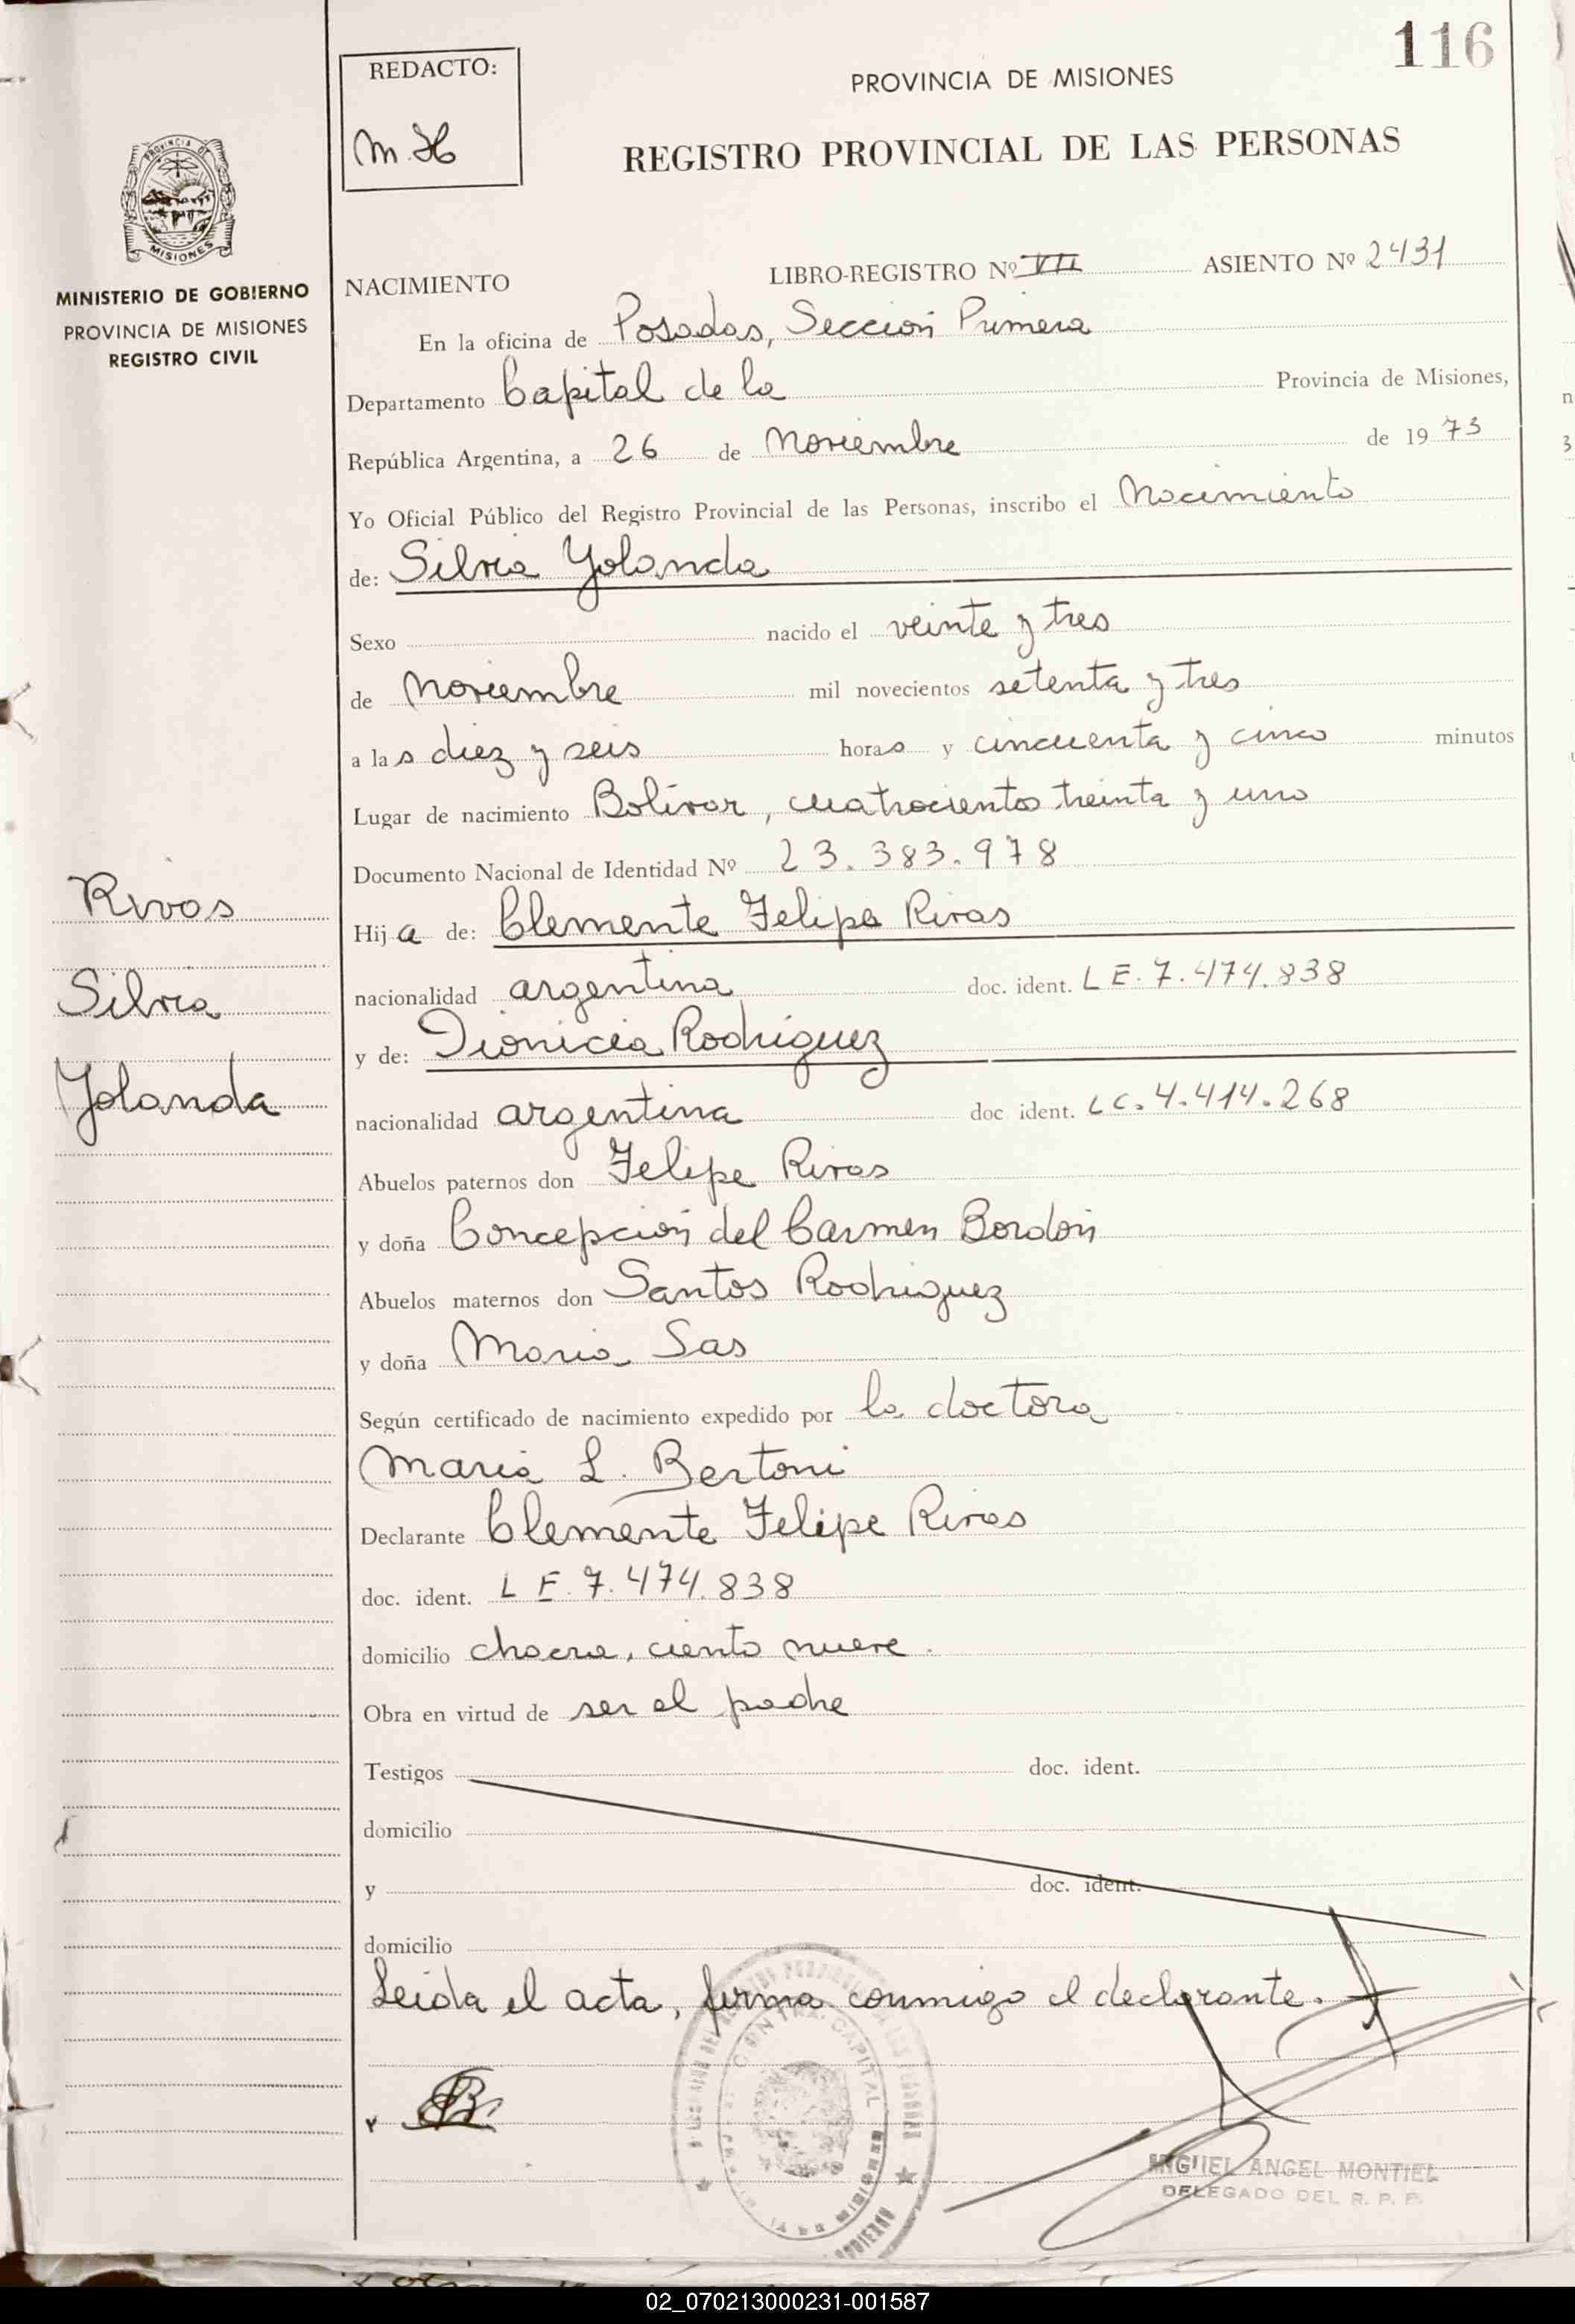 116
REDACTO:
M.H
PROVINCIA DE MISIONES
REGISTRO PROVINCIAL DE LAS PERSONAS
PROVINCIA DE
MISIONES
MINISTERIO DE GOBIERNO
PROVINCIA DE MISIONES
REGISTRO CIVIL
NACIMIENTO LIBRO-REGISTRO Nº VII ASIENTO Nº 2431
En la oficina de Posadas, Sección Primera
Departamento Capital de la Provincia de Misiones,
República Argentina, a 26 de Noviembre de 1973
Yo Oficial Público del Registro Provincial de las Personas, inscribo el Nacimiento
de: Silvia Yolanda
Sexo nacido el veinte y tres
de Noviembre mil novecientos setenta y tres
a las diez y seis horas y cincuenta y cinco minutos
Lugar de nacimiento Bolívar, cuatrocientos treinta y uno
Documento Nacional de Identidad Nº 23.383.978
Rivas
Silvia
Yolanda
Hija de: Clemente Felipe Rivas
nacionalidad argentina doc. ident. L E. 7.474.838
y de: Dionicia Rodriguez
nacionalidad argentina doc ident. L C. 4.414.268
Abuelos paternos don Felipe Rivas
y doña Concepción del Carmen Bordón
Abuelos maternos don Santos Rodriguez
y doña Maria Sas
Según certificado de nacimiento expedido por la doctora
Maria L. Bertoni
Declarante Clemente Felipe Rivas
doc. ident. L E. 7.474.838
domicilio chacra, ciento nueve.
Obra en virtud de ser el padre
Testigos doc. ident.
domicilio
y doc. ident.
domicilio
Leida el acta, firma conmigo el declarante.
CAPITAL
MIGUEL ANGEL MONTIEL
DELEGADO DEL R. P. P.
02_070213000231-001587